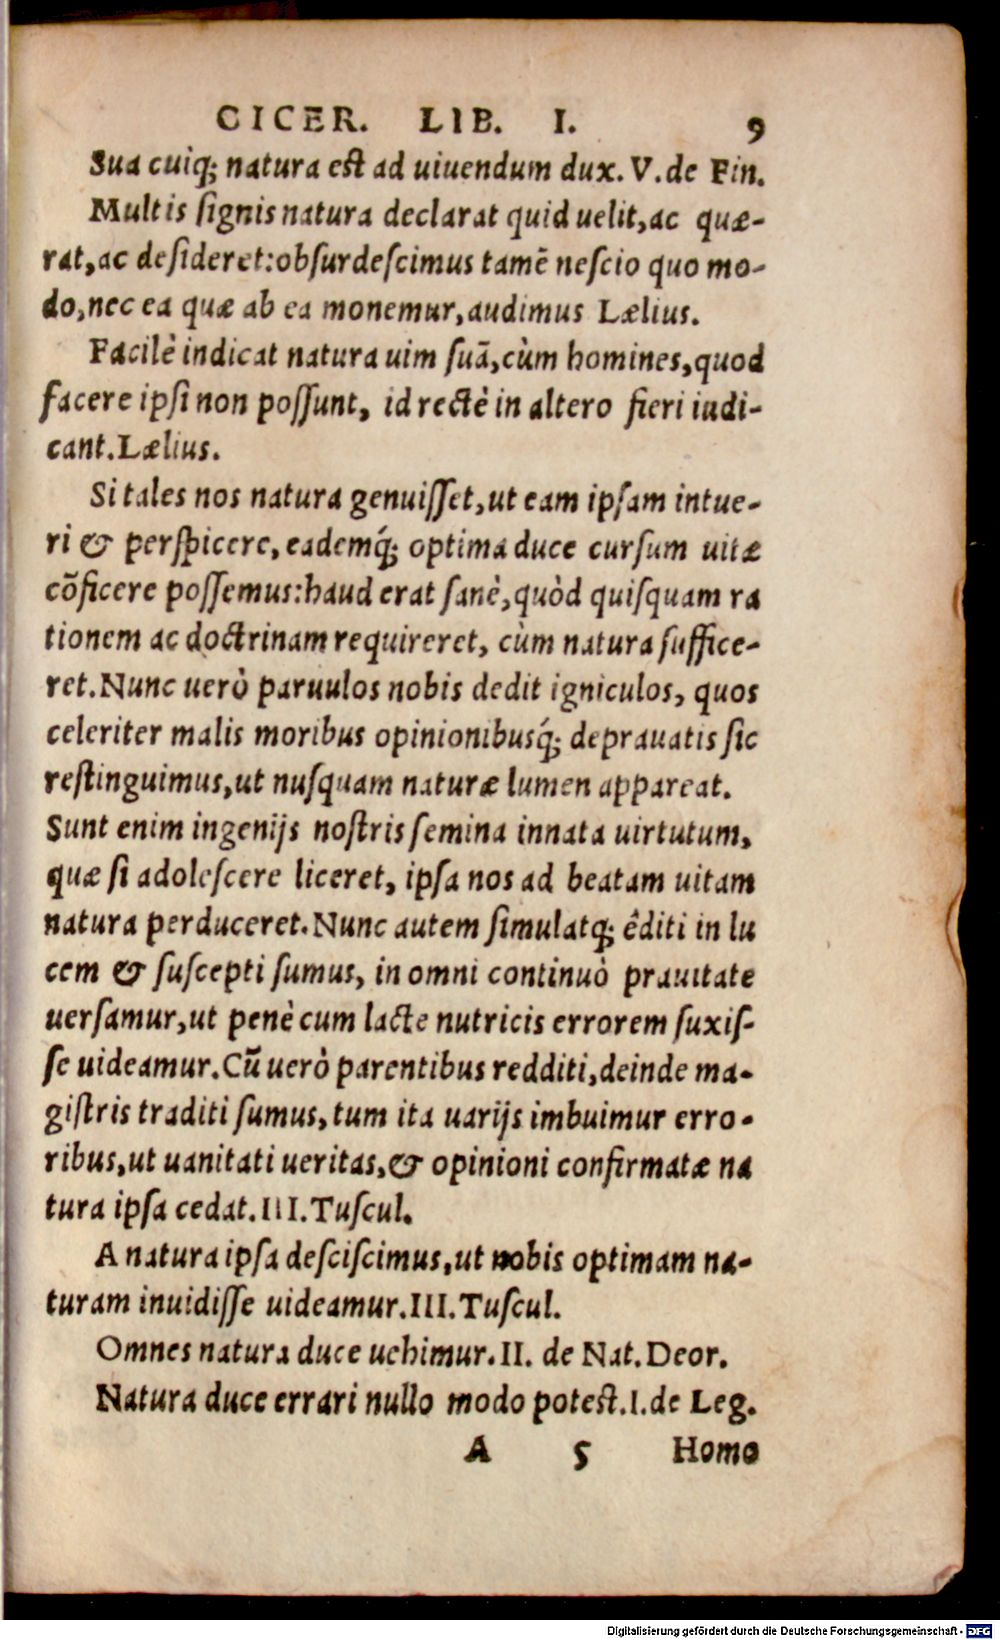 CICER. LIB. I. 9
Sua cuiq; natura est ad uiuendum dux. V. de Fin.
Multis signis natura declarat quid uelit, ac quæ-
rat, ac desideret: obsurdescimus tamē nescio quo mo-
do, nec ea quæ ab ea monemur, audimus Lælius.
Facilè indicat natura uim suā, cùm homines, quod
facere ipsi non possunt, id rectè in altero fieri iudi-
cant. Lælius.
Si tales nos natura genuisset, ut eam ipsam intue-
ri & perspicere, eademq́; optima duce cursum uitæ
cōficere possemus: haud erat sanè, quòd quisquam ra
tionem ac doctrinam requireret, cùm natura suffice-
ret. Nunc uerò paruulos nobis dedit igniculos, quos
celeriter malis moribus opinionibusq́; deprauatis sic
restinguimus, ut nusquam naturæ lumen appareat.
Sunt enim ingenijs nostris semina innata uirtutum,
quæ si adolescere liceret, ipsa nos ad beatam uitam
natura perduceret. Nunc autem simulatq; êditi in lu
cem & suscepti sumus, in omni continuò prauitate
uersamur, ut penè cum lacte nutricis errorem suxis-
se uideamur. Cū uerò parentibus redditi, deinde ma-
gistris traditi sumus, tum ita uarijs imbuimur erro-
ribus, ut uanitati ueritas, & opinioni confirmatæ na
tura ipsa cedat. III. Tuscul.
A natura ipsa desciscimus, ut nobis optimam na-
turam inuidisse uideamur. III. Tuscul.
Omnes natura duce uehimur. II. de Nat. Deor.
Natura duce errari nullo modo potest. I. de Leg.
A 5 Homo
Digitalisierung gefördert durch die Deutsche Forschungsgemeinschaft - DFG